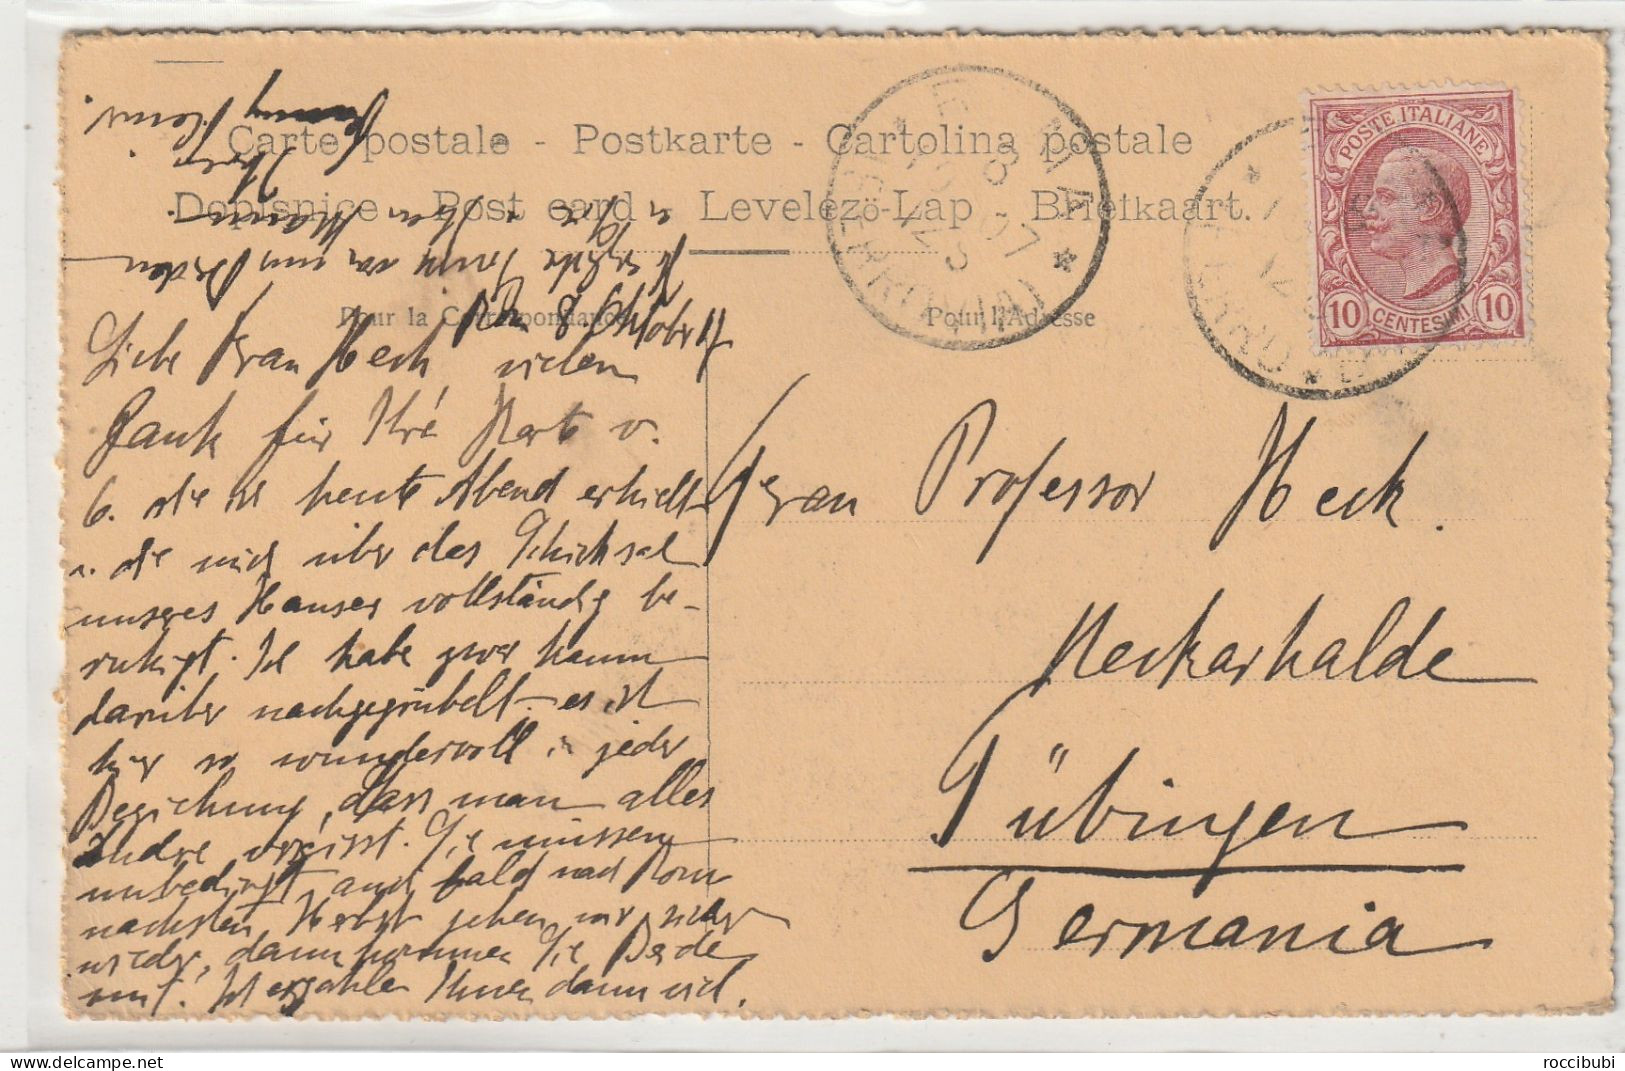 Carte postale - Postkarte - Cartolina postale
Dopisnice - Post card - Levelező-Lap - Briefkaart.
Pour la Correspondance
Pour l'Adresse
POSTE ITALIANE
10 CENTESIMI 10
ROMA
8
10 07
(FERROVIA)
Rom 8. Oktober 07
Liebe Frau Heck vielen
Dank für Ihre Karte v.
6. die ich heute Abend erhielt
u. die mich über das Schicksal
unseres Hauses vollständig be-
ruhigt. Ich habe zwar kaum
darüber nachgegrübelt - es ist
hier so wundervoll in jeder
Beziehung, dass man alles
Andre vergisst. Sie müssen
unbedingt auch bald nach Rom
nächsten Herbst gehen wir sicher
wieder, dann kommen Sie Beide
mit. Ich erzähle Ihnen dann viel.
Grüsse von uns Beiden
an Sie u. Ihren Mann
Ihre
Frau Professor Heck.
Neckarhalde
Tübingen
Germania
roccibubi